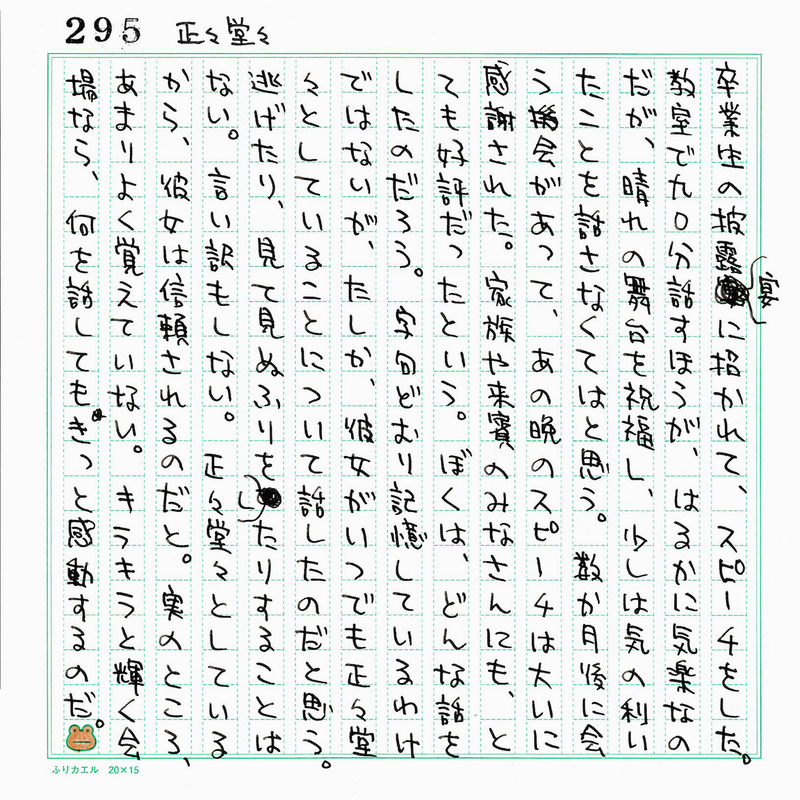 295 正々堂々
卒業生の披露宴に招かれて、スピーチをした。
教室で九〇分話すほうが、はるかに気楽なの
だが、晴れの舞台を祝福し、少しは気の利い
たことを話さなくてはと思う。数か月後に会
う機会があって、あの晩のスピーチは大いに
感謝された。家族や来賓のみなさんにも、と
ても好評だったという。ぼくは、どんな話を
したのだろう。字句どおり記憶しているわけ
ではないが、たしか、彼女がいつでも正々堂
々としていることについて話したのだと思う。
逃げたり、見て見ぬふりをしたりすることは
ない。言い訳もしない。正々堂々としている
から、彼女は信頼されるのだと。実のところ、
あまりよく覚えていない。キラキラと輝く会
場なら、何を話してもきっと感動するのだ。
ふりカエル 20×15